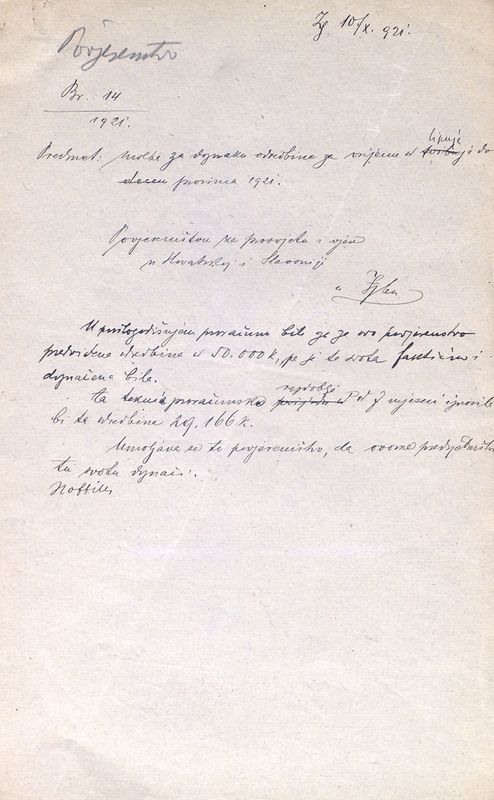 Zg 10/X. 921.
Povjerenstvo
Br. 14
1921.
Predmet: Molba za doznaku odredbine za vrijeme od lipnja do
prosinca 1921.
Povjerenštvu za prosvjetu i vjere
u Hrvatskoj i Slavoniji
u Zgbu
U prošlogodišnjem proračunu bila je za ovo povjerenstvo
predvidena odredbina od 50.000 K, pa je ta svota faktično i
doznačena bila.
Za tekuće proračunsko razdoblje od 7 mjeseci iznosila
bi ta odredbina 29,166 K.
Umoljava se to povjerenštvo, da ovome predsjedništvu
tu svotu doznači.